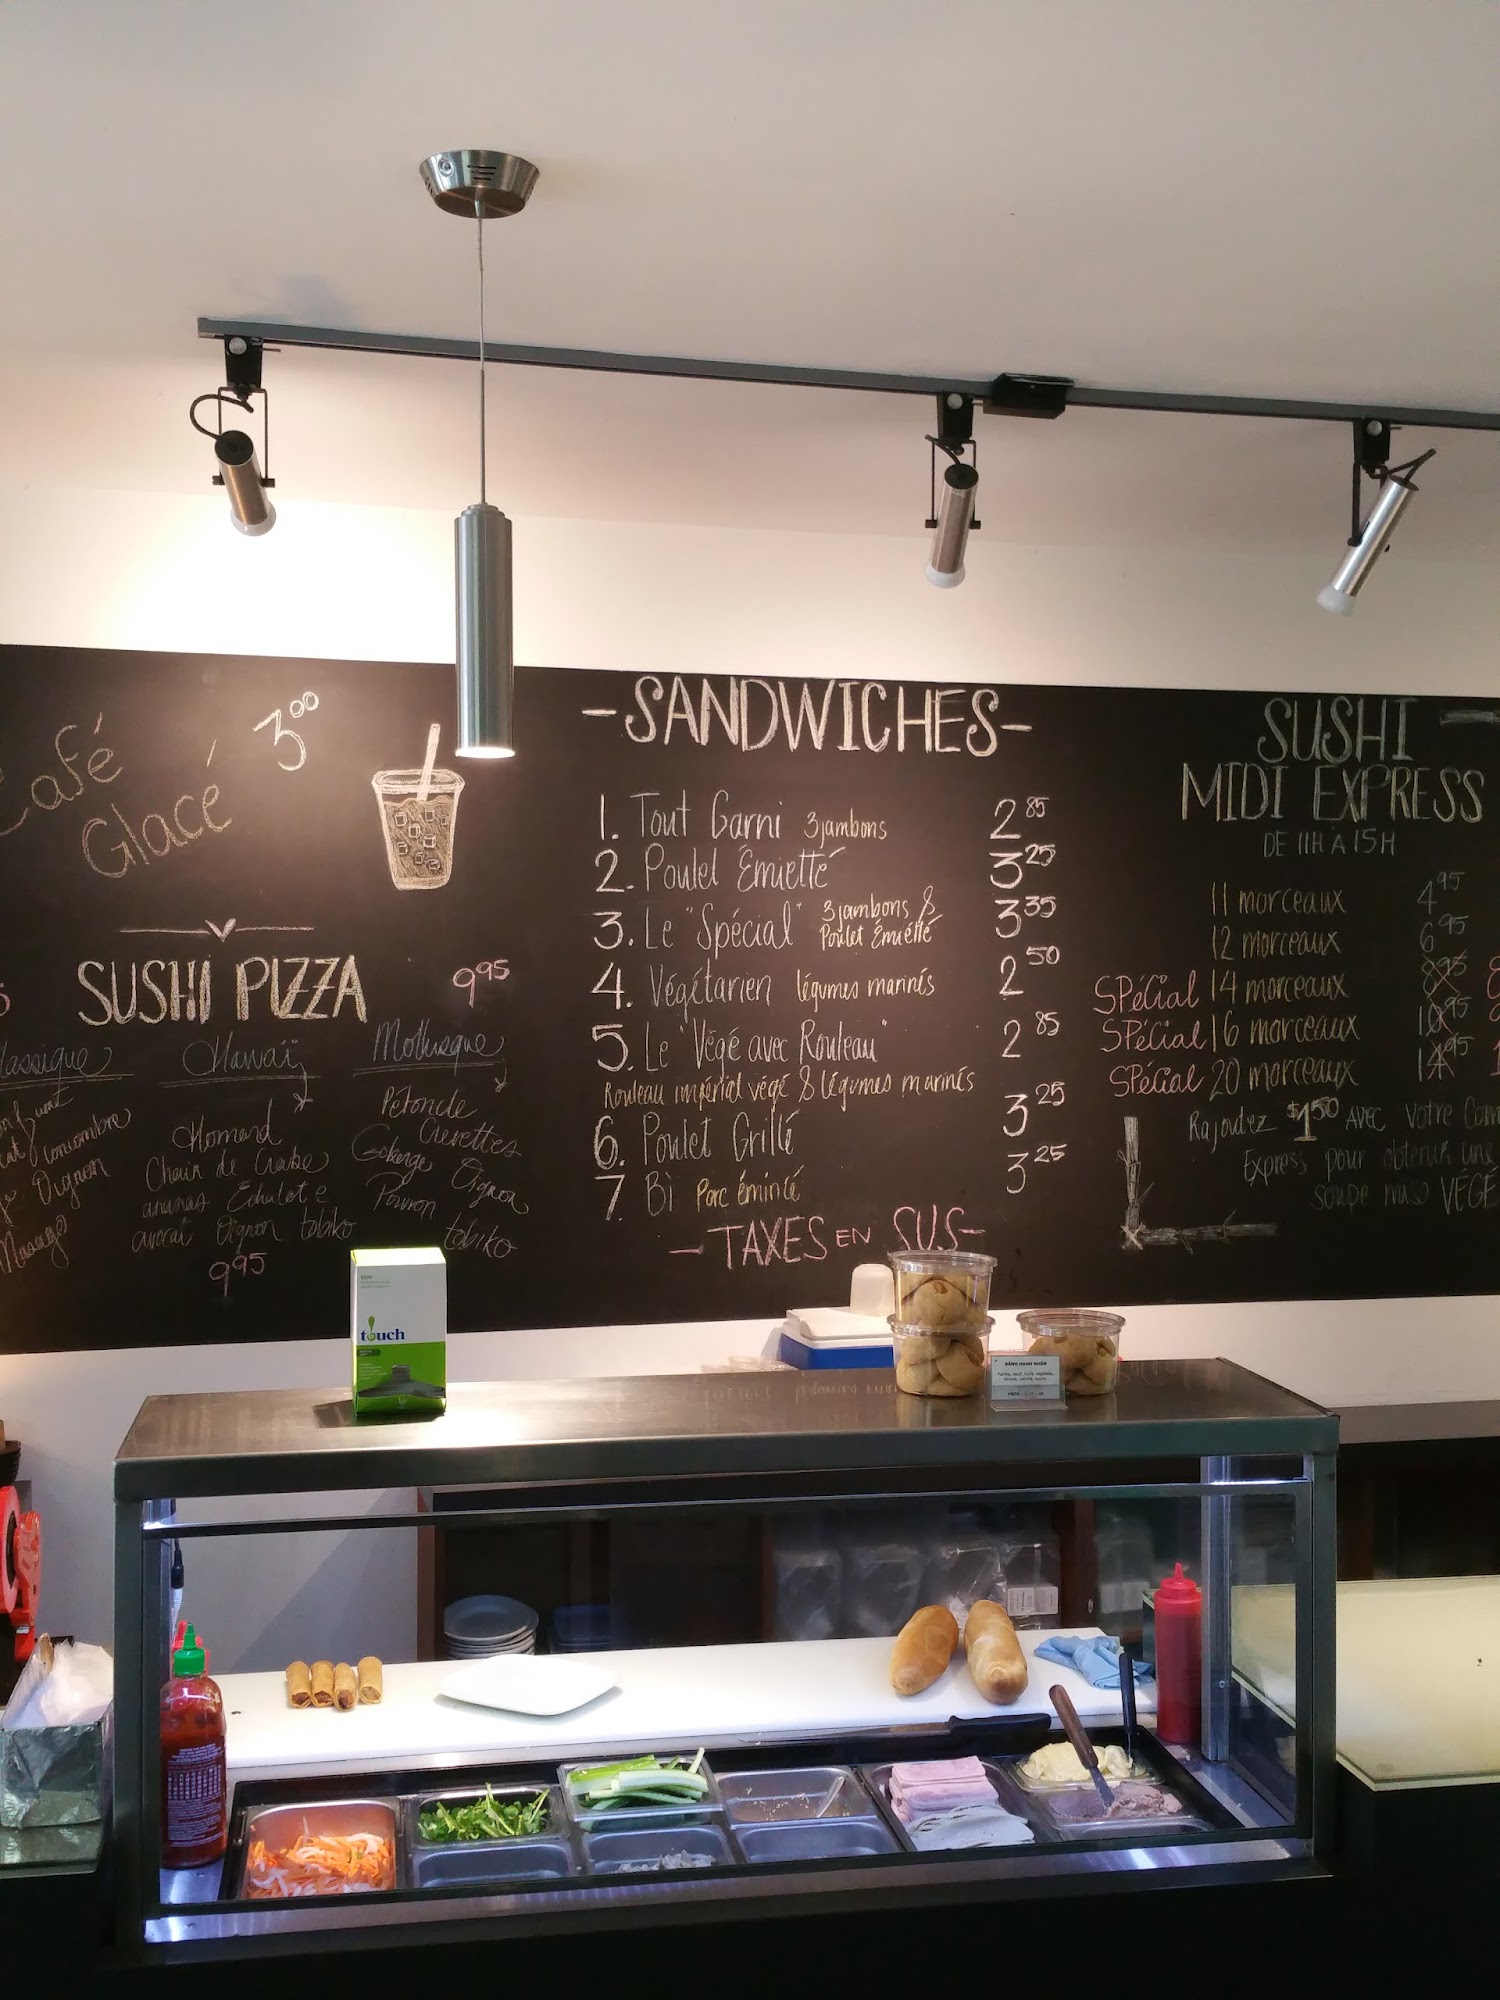 Café
Glacé
3.00
SUSHI PIZZA 9.95
Hawaï
Homard
Chair de Crabe
ananas Échalote
avocat Oignon tobiko
9.95
Mollusque
Pétoncle
Crevettes
Oignon
tobiko
concombre
Oignon
Masago
- SANDWICHES -
1. Tout Garni 3 jambons 2.85
2. Poulet Émietté 3.25
3. Le "Spécial" 3 jambons & Poulet Émietté 3.35
4. Végétarien légumes marinés 2.50
5. Le "Végé avec Rouleau" 2.85
Rouleau impérial végé & légumes marinés
6. Poulet Grillé 3.25
7. Bì Porc émincé 3.25
- TAXES EN SUS -
SUSHI
MIDI EXPRESS
DE 11H À 15H
11 morceaux 4.95
12 morceaux 6.95
SPÉCIAL 14 morceaux 8.95
SPÉCIAL 16 morceaux 10.95
SPÉCIAL 20 morceaux 14.95
Rajoutez $1.50 AVEC votre
Express pour obtenir une
soupe miso VÉGÉ
touch
BÁNH HẠNH NHÂN